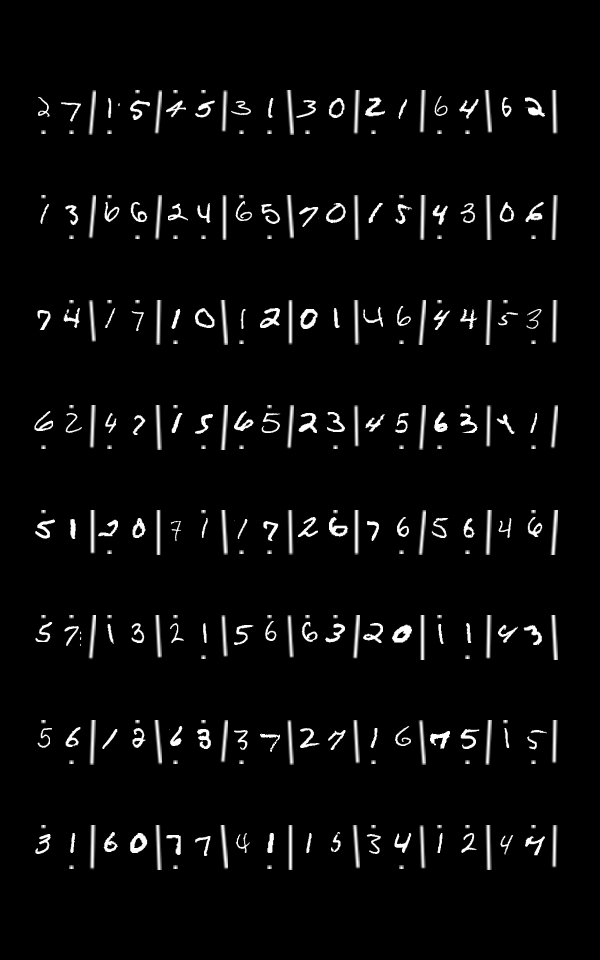 2 7 | 1 5 | 4 5 | 3 1 | 3 0 | 2 1 | 6 4 | 6 2 |
1 3 | 6 6 | 2 4 | 6 5 | 7 0 | 1 5 | 4 3 | 0 6 |
7 4 | 1 7 | 1 0 | 1 2 | 0 1 | 4 6 | 4 4 | 5 3 |
6 2 | 4 7 | 1 5 | 6 5 | 2 3 | 4 5 | 6 3 | 4 1 |
5 1 | 2 0 | 7 1 | 1 7 | 2 6 | 7 6 | 5 6 | 4 6 |
5 7 | 1 3 | 2 1 | 5 6 | 6 3 | 2 0 | 1 1 | 4 3 |
5 6 | 1 2 | 6 3 | 3 7 | 2 7 | 1 6 | 7 5 | 1 5 |
3 1 | 6 0 | 7 7 | 4 1 | 1 5 | 3 4 | 1 2 | 4 4 |